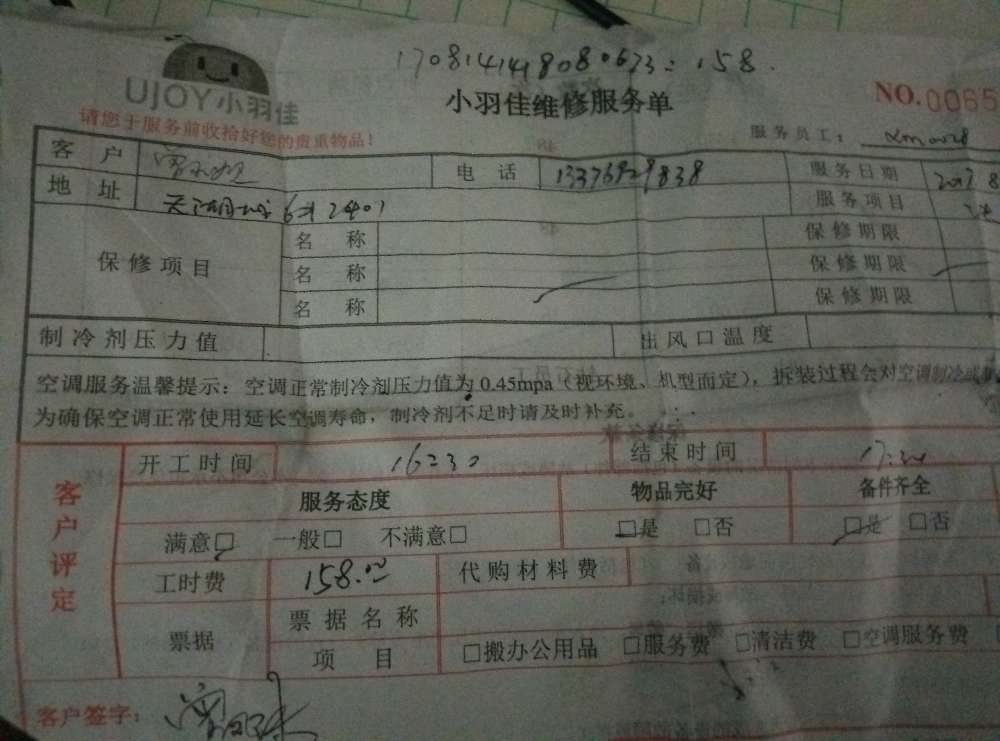 UJOY小羽佳
小羽佳维修服务单
NO.0065
请您于服务前收拾好您的贵重物品！
服务员工：
客户
电话 13376929838
服务日期 2017 8
地址 6#2401
服务项目
保修项目 名称 保修期限
名称 保修期限
名称 保修期限
制冷剂压力值 出风口温度
空调服务温馨提示：空调正常制冷剂压力值为0.45mpa（视环境、机型而定），拆装过程会对空调制冷或
为确保空调正常使用延长空调寿命，制冷剂不足时请及时补充。
客户评定
开工时间 16:30 结束时间
服务态度 物品完好 备件齐全
满意□ 一般□ 不满意□ □是 □否 □是 □否
工时费 158.00 代购材料费
票据 票据名称
项目 □搬办公用品 □服务费 □清洁费 □空调服务费
客户签字：